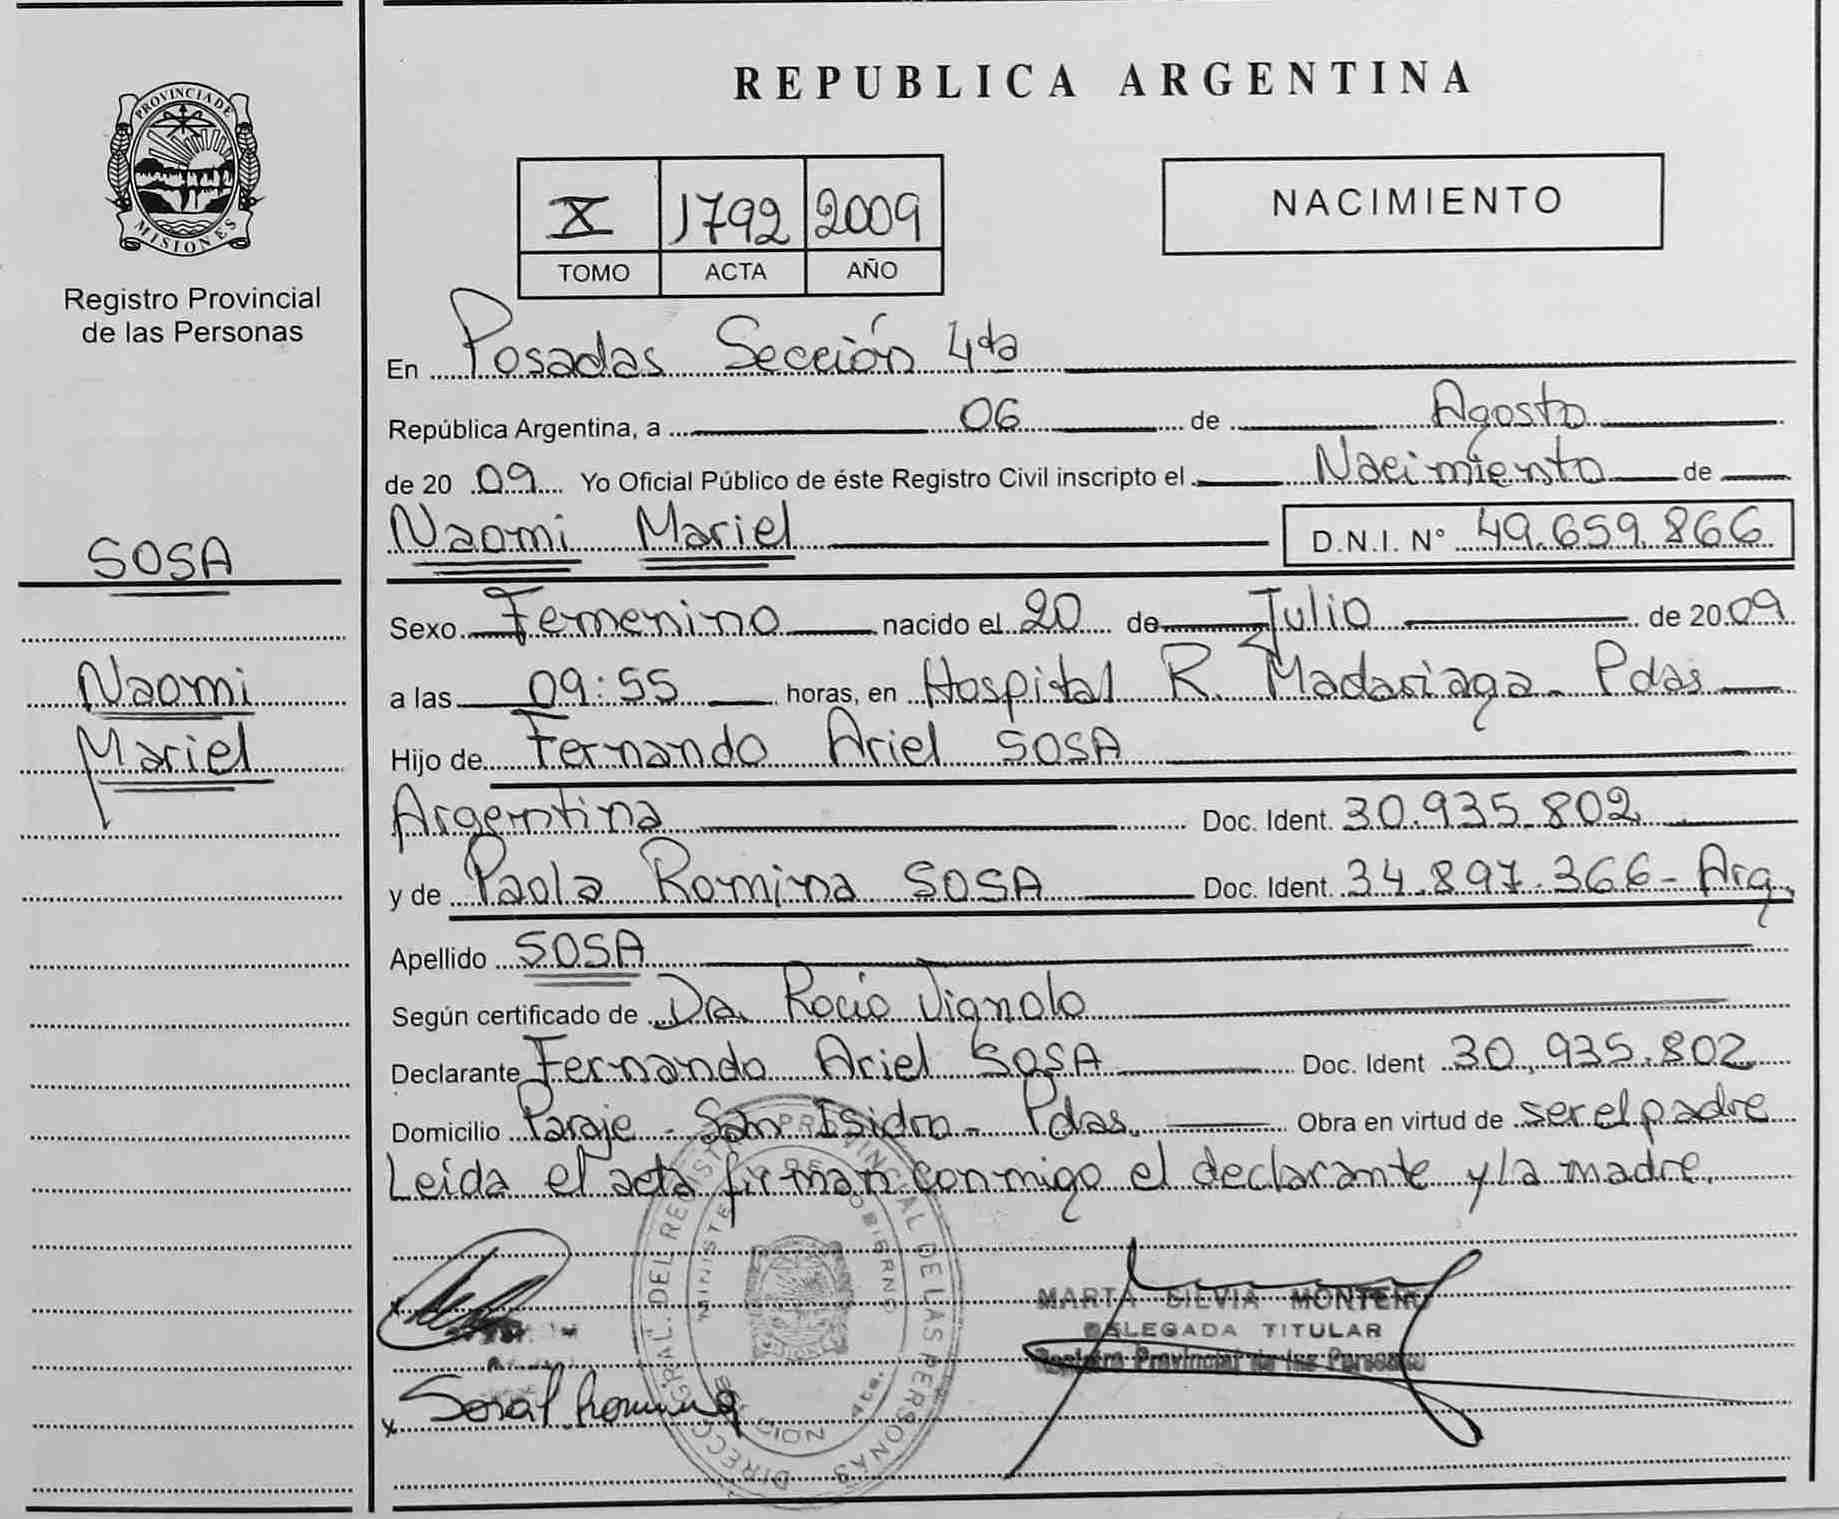 REPUBLICA ARGENTINA
PROVINCIA DE
MISIONES
Registro Provincial
de las Personas
X 1792 2009
TOMO ACTA AÑO
NACIMIENTO
En Posadas Sección 4ta
República Argentina, a 06 de Agosto
de 20 09 Yo Oficial Público de éste Registro Civil inscripto el Nacimiento de
SOSA
Naomi Mariel D.N.I. N° 49.659.866
Sexo Femenino nacido el 20 de Julio de 20 09
Naomi
a las 09:55 horas, en Hospital R. Madariaga - Pdas
Mariel
Hijo de Fernando Ariel SOSA
Argentina Doc. Ident. 30.935.802
y de Paola Romina SOSA Doc. Ident. 34.897.366 - Arg.
Apellido SOSA
Según certificado de Dra. Rocio Vignolo
Declarante Fernando Ariel SOSA Doc. Ident 30.935.802
Domicilio Paraje - San Isidro - Pdas. Obra en virtud de ser el padre
Leída el acta firman conmigo el declarante y la madre.
DIRECC. GRAL. DEL REGISTRO PROVINCIAL DE LAS PERSONAS
MINISTERIO DE GOBIERNO
MARTA SILVIA MONTERO
DELEGADA TITULAR
Registro Provincial de las Personas